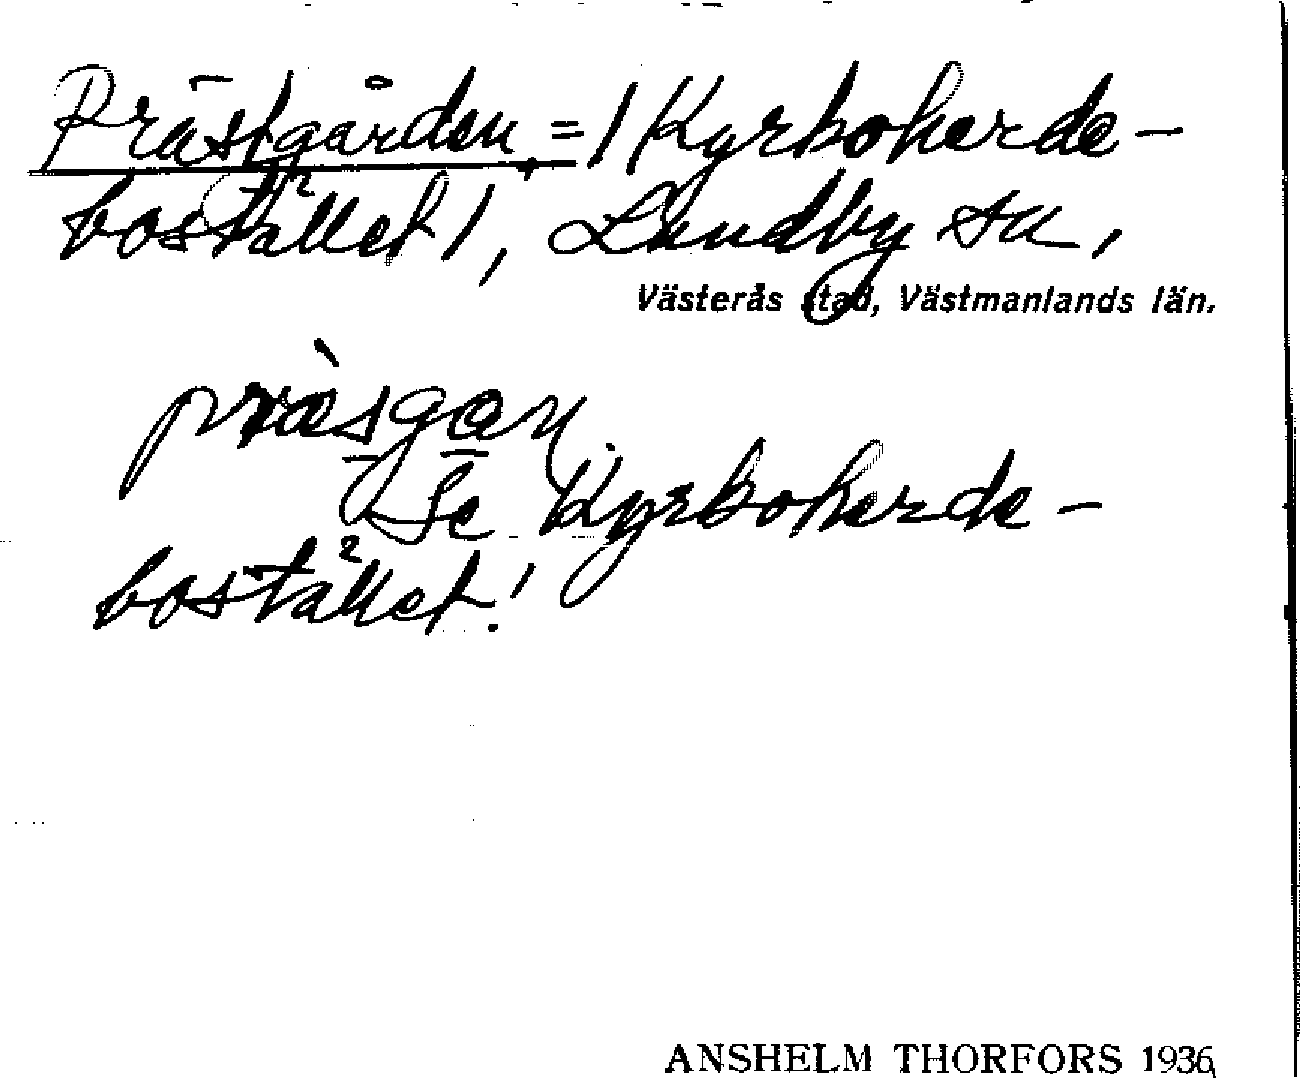 Prästgården, = / Kyrkoherde-
bostället /, Lundby sn,
Västerås stad, Västmanlands län.
prȁsgan
Se Kyrkoherde-
bostället!
ANSHELM THORFORS 1936